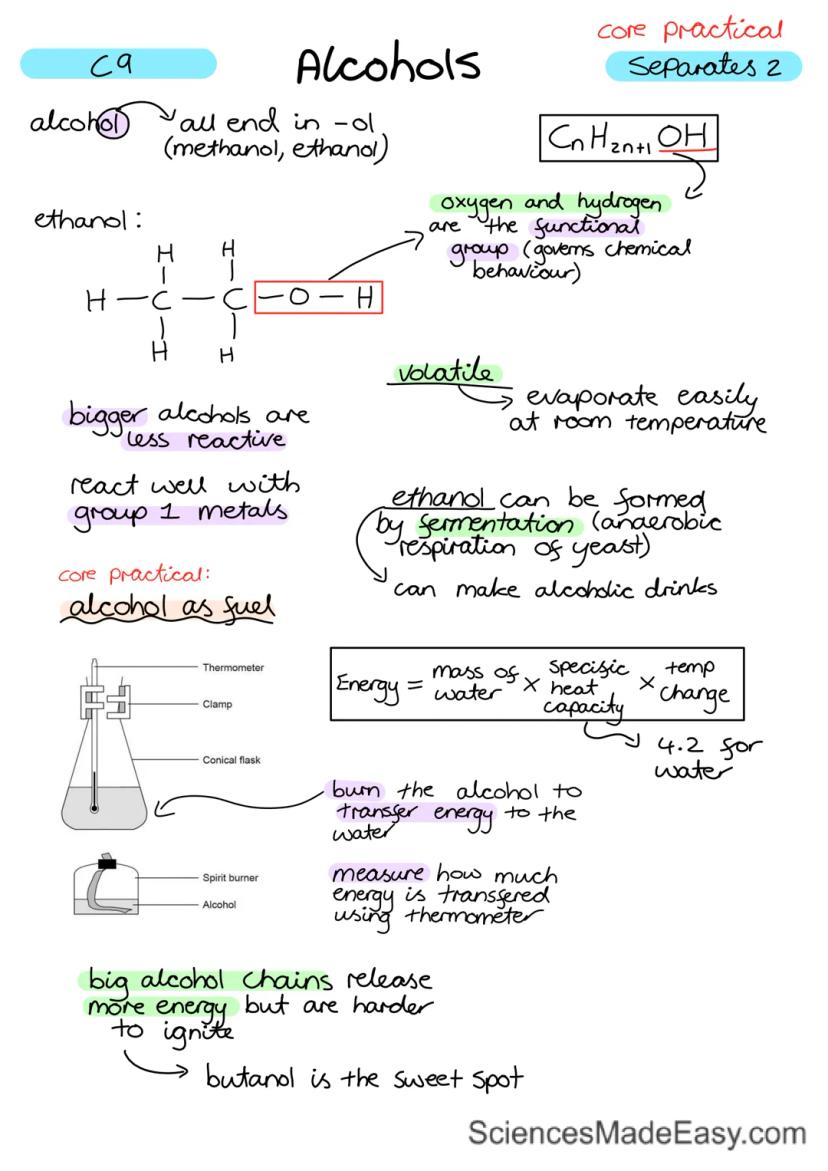 core practical
C9
Alcohols
Separates 2
alcohol
all end in -ol
(methanol, ethanol)
CnH2n+1 OH
oxygen and hydrogen
are the functional
group (governs chemical
behaviour)
ethanol:
H H
H — C — C — O — H
H H
volatile
evaporate easily
at room temperature
bigger alcohols are
less reactive
react well with
group 1 metals
ethanol can be formed
by fermentation (anaerobic
respiration of yeast)
can make alcoholic drinks
core practical:
alcohol as fuel
Thermometer
Clamp
Conical flask
Spirit burner
Alcohol
Energy = mass of water × specific heat capacity × temp change
4.2 for
water
burn the alcohol to
transfer energy to the
water
measure how much
energy is transfered
using thermometer
big alcohol chains release
more energy but are harder
to ignite
butanol is the sweet spot
SciencesMadeEasy.com